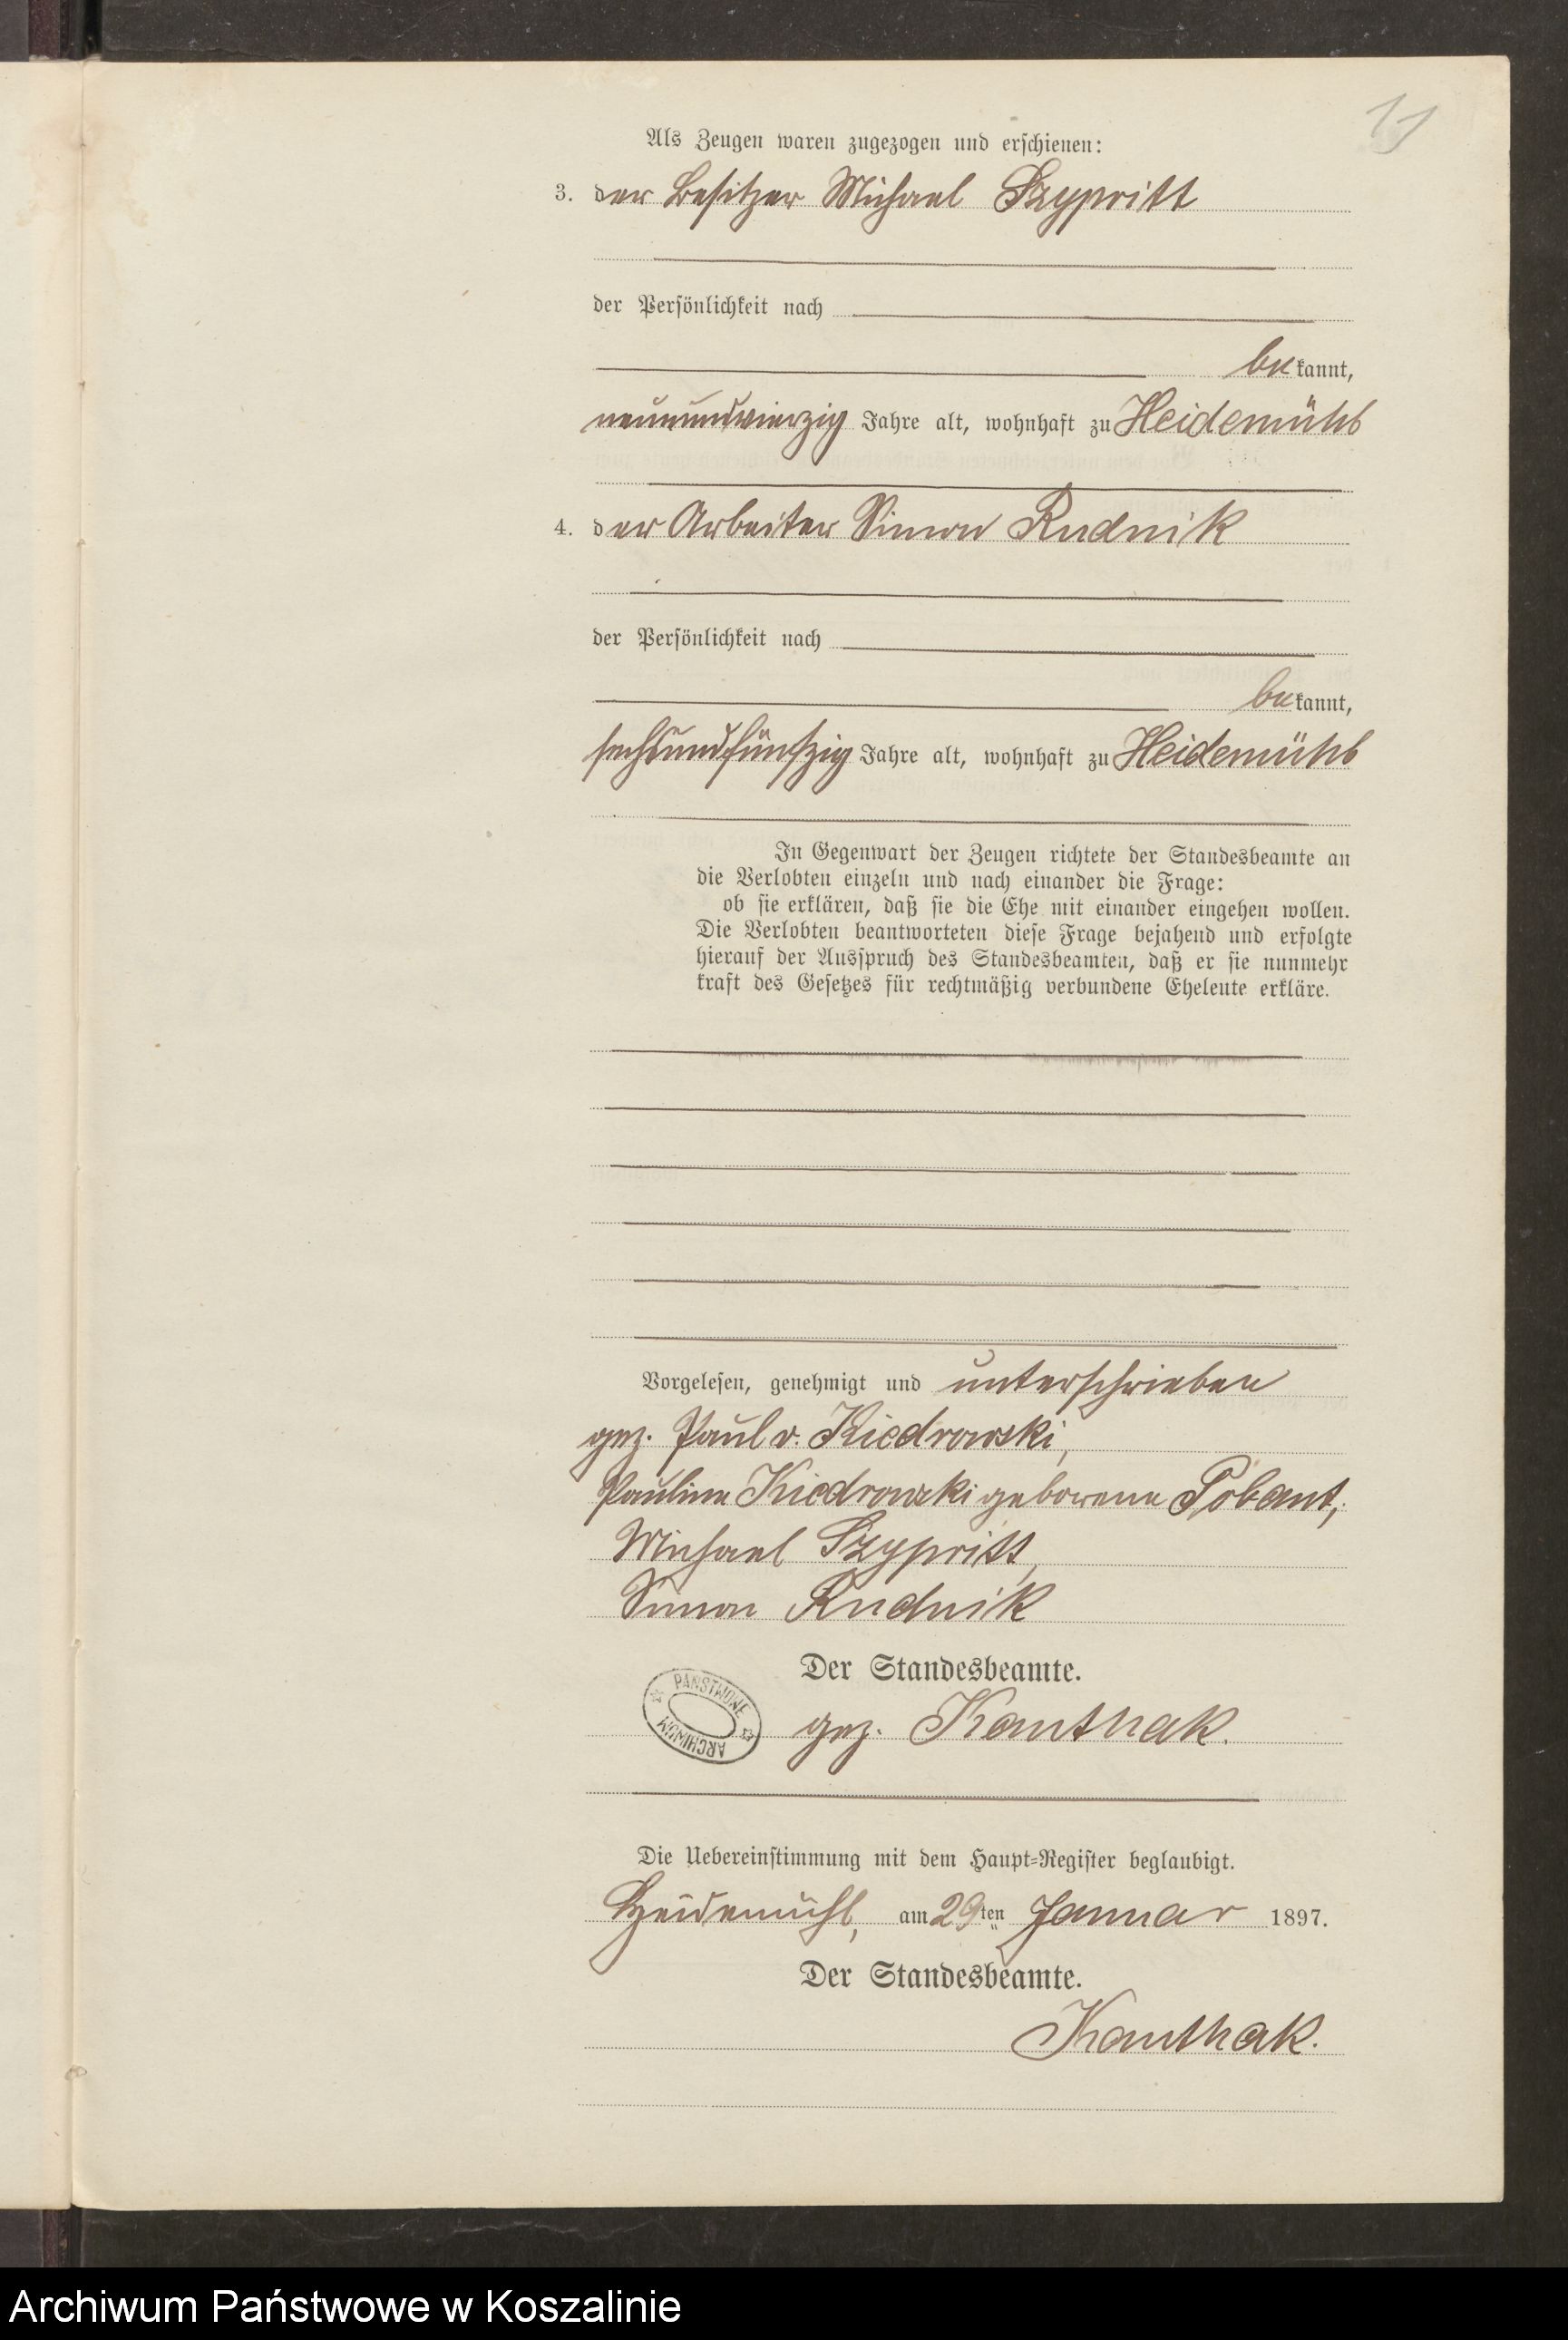 11
Als Zeugen waren zugezogen und erschienen:
3. der Besitzer Michael Szypritt
der Persönlichkeit nach
bekannt,
neunundvierzig Jahre alt, wohnhaft zu Heidemühl
4. der Arbeiter Simon Rudnik
der Persönlichkeit nach
bekannt,
sechsundfünfzig Jahre alt, wohnhaft zu Heidemühl
In Gegenwart der Zeugen richtete der Standesbeamte an
die Verlobten einzeln und nach einander die Frage:
ob sie erklären, daß sie die Ehe mit einander eingehen wollen.
Die Verlobten beantworteten diese Frage bejahend und erfolgte
hierauf der Ausspruch des Standesbeamten, daß er sie nunmehr
kraft des Gesetzes für rechtmäßig verbundene Eheleute erkläre.
Vorgelesen, genehmigt und unterschrieben
gez. Paul v. Kiedrowski,
Pauline Kiedrowski geborene Pobant,
Michael Szypritt,
Simon Rudnik
Der Standesbeamte.
ARCHIWUM PAŃSTWOWE
gez. Kanthak.
Die Uebereinstimmung mit dem Haupt=Register beglaubigt.
Heidemühl, am 29ten Januar 1897.
Der Standesbeamte.
Kanthak.
Archiwum Państwowe w Koszalinie